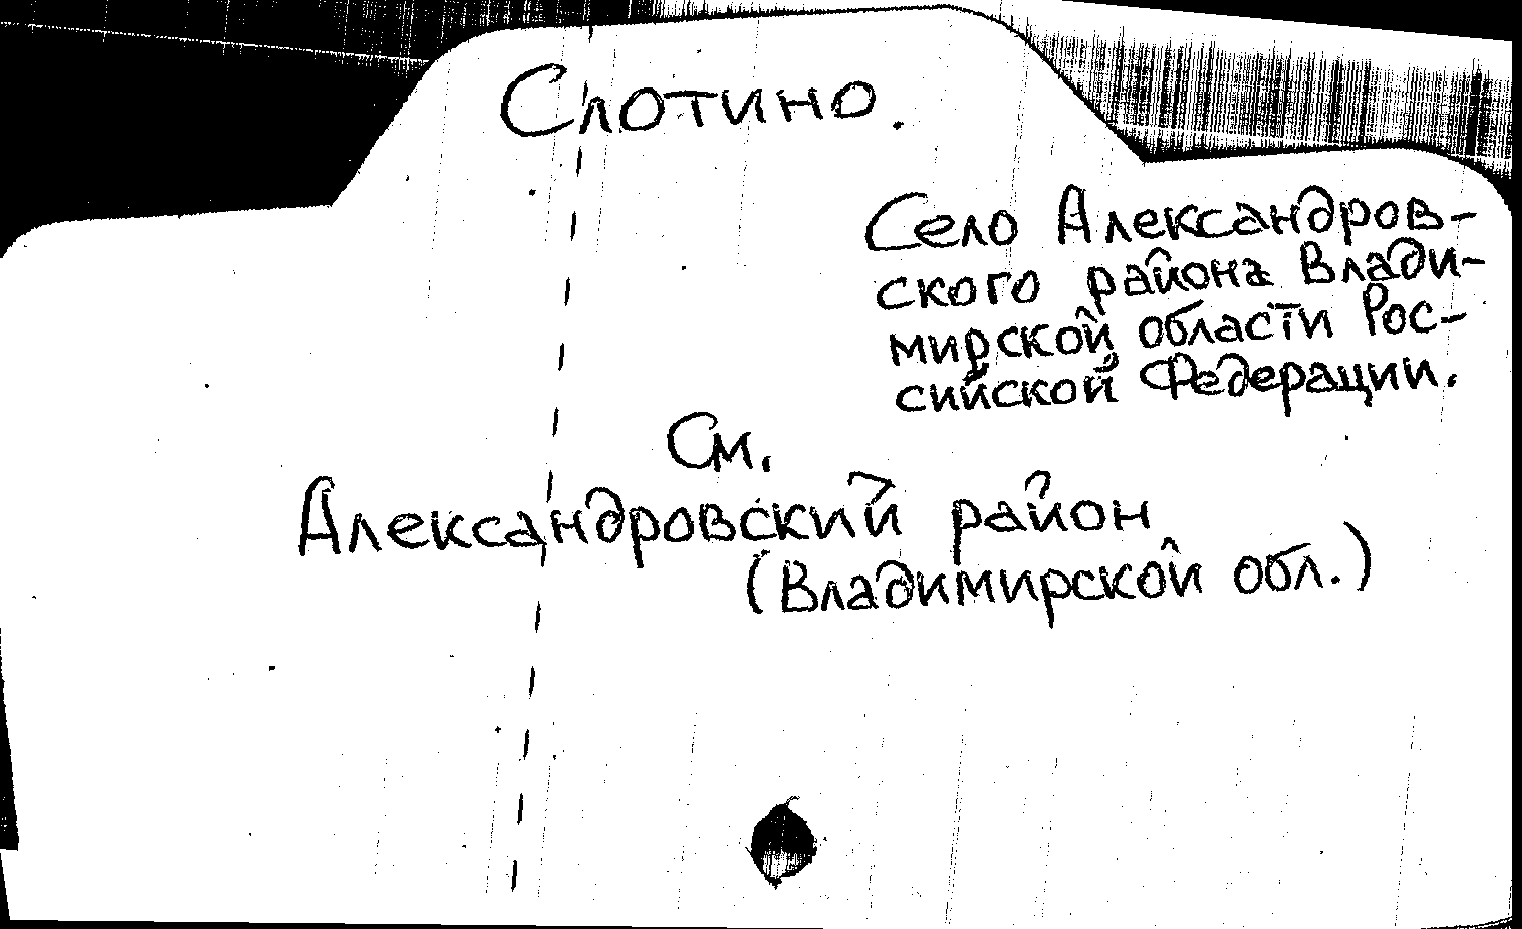 Слотино.
Село Александров-
ского района Влади-
мирской области Рос-
сийской Федерации.
См.
Александровский район
(Владимирской обл.)